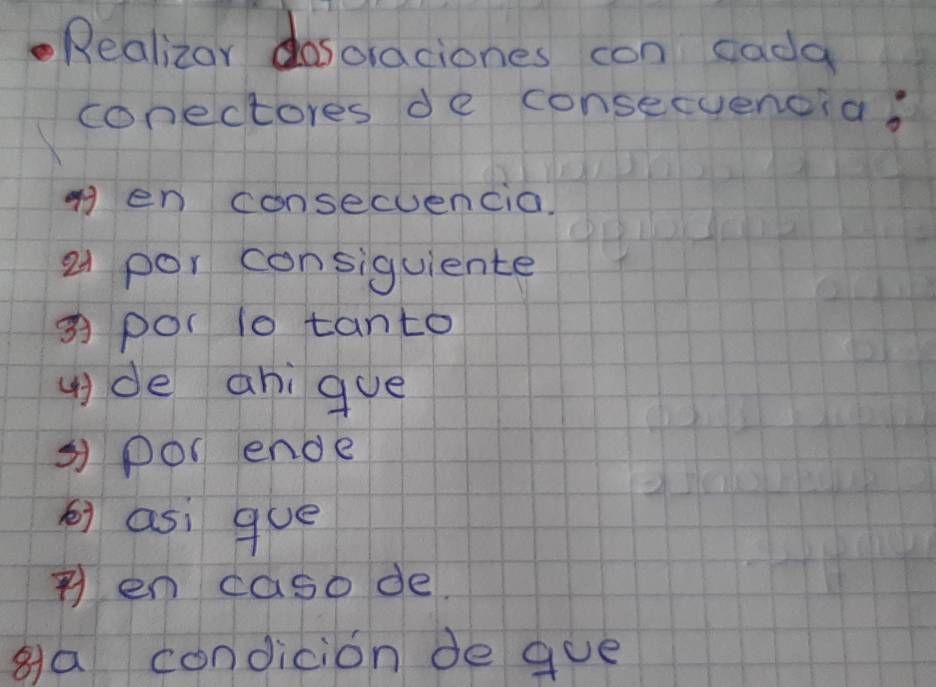 • Realizar dos oraciones con cada
conectores de consecuencia:
1) en consecuencia.
2) por consiguiente
3) por lo tanto
4) de ahi que
5) por ende
6) asi que
7) en caso de.
8) a condición de que